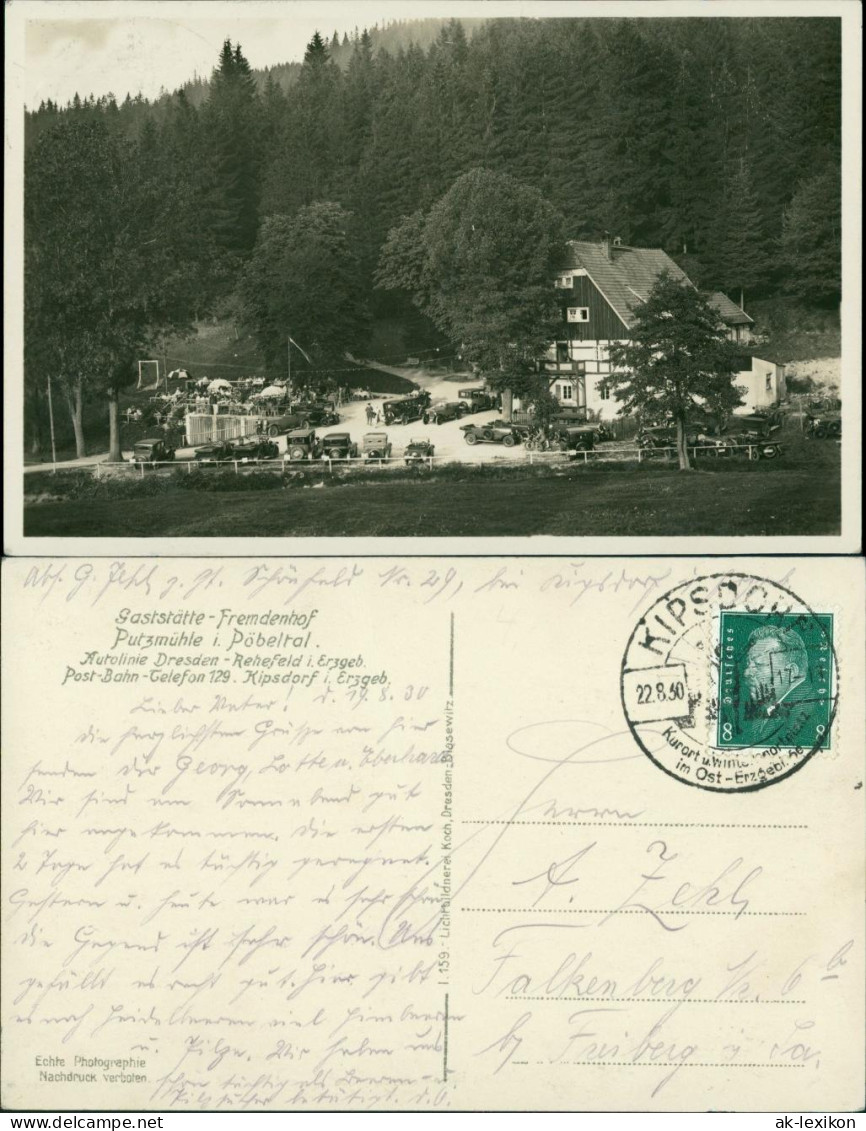 Abs. G.
Schönfeld Nr. 29, bei Kipsdorf
Gaststätte-Fremdenhof
Putzmühle i. Pöbeltal.
Autolinie Dresden-Rehefeld i. Erzgeb.
Post-Bahn-Telefon 129. Kipsdorf i. Erzgeb.
Lieber Vater! d. 19.8.30
die herzlichsten Grüsse von hier
senden dir Georg, Lotte u. Eberhard
Wir sind am Sonnabend gut
hier angekommen. Die ersten
2 Tage hat es tüchtig geregnet.
Gestern u. heute war es sehr schön
die Gegend ist sehr schön. Uns
gefällt es recht gut. Hier gibt
es noch Heidelbeeren viel Himbeeren
u. Pilze. Wir haben uns
schon tüchtig als Beeren- u.
Pilzsucher betätigt. d. O.
Echte Photographie
Nachdruck verboten.
I. 159. Lichtbildnerei Koch, Dresden-Blasewitz
KIPSDORF
22.8.30
Kurort u. Wintersportplatz
im Ost-Erzgebirge
DEUTSCHES REICH
8 8
Herrn
A. Zehl
Falkenberg Nr. 6 b
by Freiberg i. Sa.
ak-lexikon